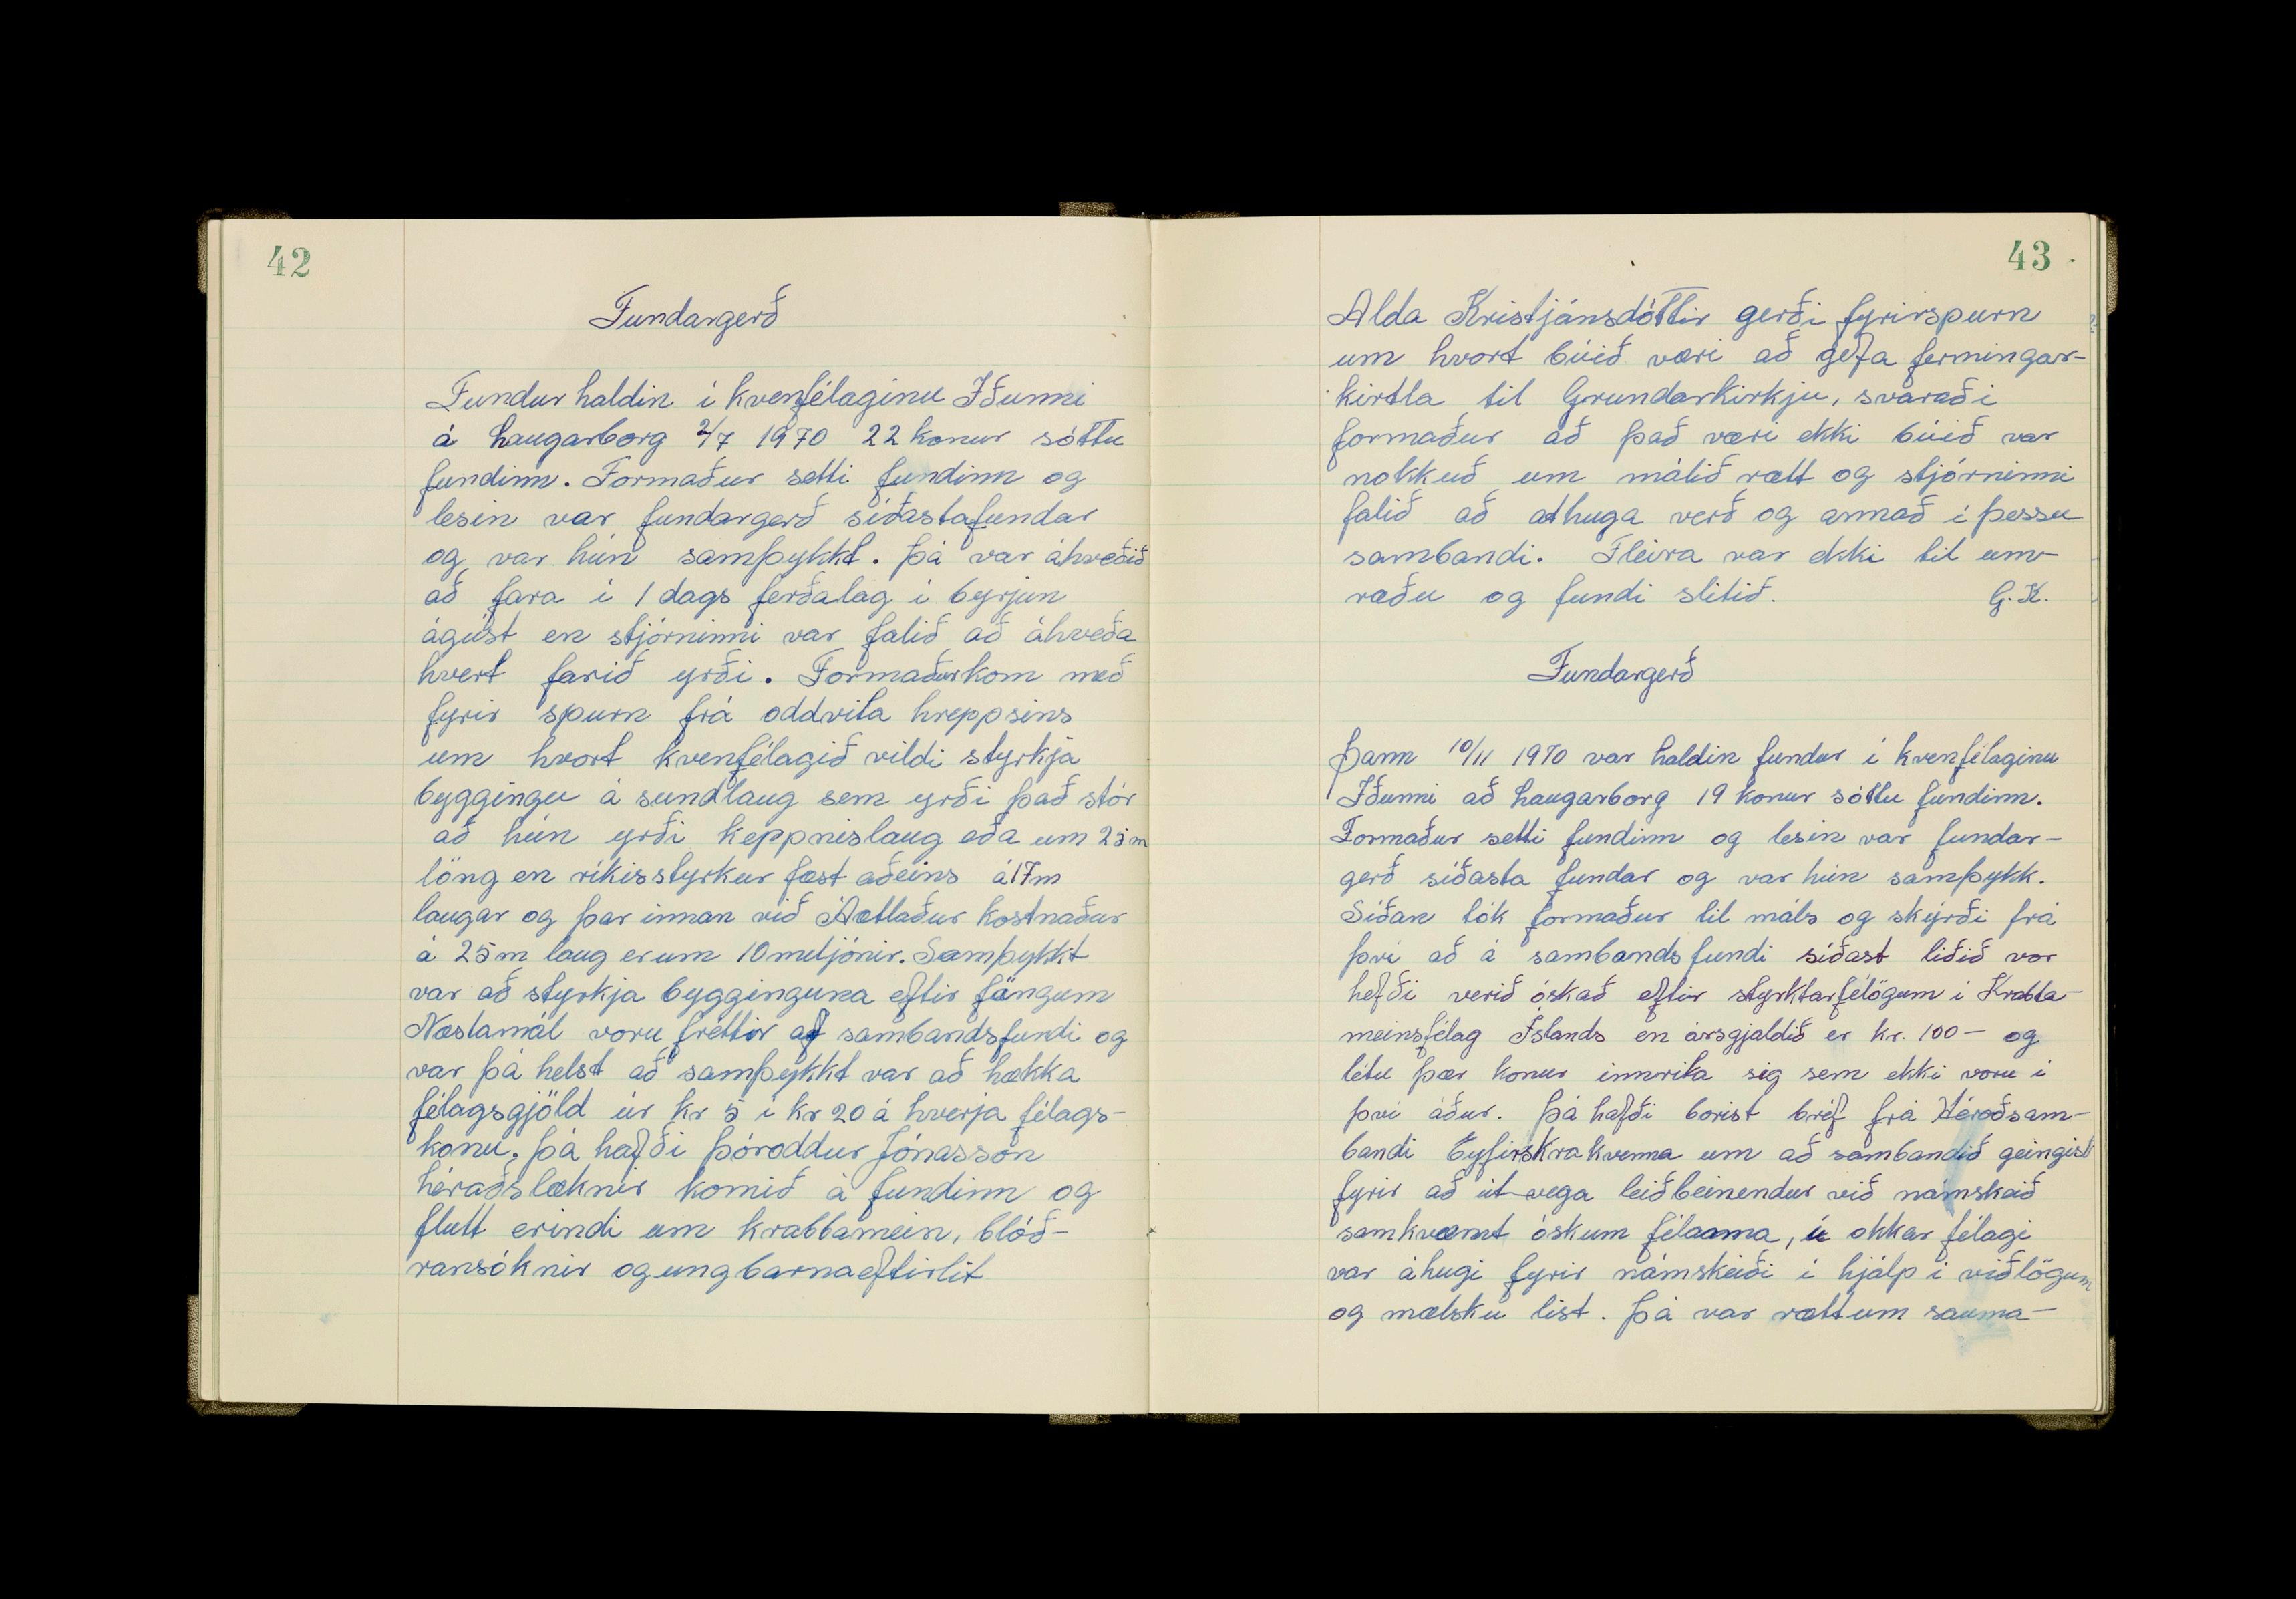 42
Fundargerð
Fundur haldin í kvenfélaginu Iðunni
á Laugarborg 2/7 1970 22 konur sóttu
fundinn. Formaður setti fundinn og
lesin var fundargerð síðastafundar
og var hún samþykkt. Þá var ákveðið
að fara í 1 dags ferðalag í byrjun
ágúst en stjórninni var falið að ákveða
hvert farið yrði. Formaður kom með
fyrir spurn frá oddvita hreppsins
um hvort kvenfélagið vildi styrkja
byggingu á sundlaug sem yrði það stór
að hún yrði keppnislaug eða um 25 m
löng en ríkisstyrkur fæst aðeins á 17m
laugar og þar innan við Áætlaður kostnaður
á 25 m laug er um 10 meljónir. Samþykkt
var að styrkja bygginguna eftir föngum
Næstamál voru fréttir af sambandsfundi og
var þá helst að samþykkt var að hækka
félagsgjöld úr kr 5 í kr 20 á hverja félags-
konu. Þá hafði Þóroddur Jónasson
héraðslæknir komið á fundinn og
flutt erindi um krabbamein, blóð-
ransóknir og ungbarnaeftirlit
43
Alda Kristjánsdóttir gerði fyrirspurn
um hvort búið væri að gefa fermingar-
kirtla til Grundarkirkju, svaraði
formaður að það væri ekki búið var
nokkuð um málið rætt og stjórninni
falið að athuga verð og annað í þessu
sambandi. Fleira var ekki til um-
ræðu og fundi slitið. G. K.
Fundargerð
Þann 10/11 1970 var haldin fundur í kvenfélaginu
Iðunni að Laugarborg 19 konur sóttu fundinn.
Formaður setti fundinn og lesin var fundar-
gerð síðasta fundar og var hún samþykk.
Síðan tók formaður til máls og skýrði frá
því að á sambandsfundi síðast liðið vor
hefði verið óskað eftir styrktarfélögum í Krabba-
meinsfélag Íslands en ársgjaldið er kr. 100 - og
létu þær konur innrita sig sem ekki voru í
því áður. Þá hafði borist bréf frá Héraðsam-
bandi Eyfirskra kvenna um að sambandið geingist
fyrir að út vega leiðbeinendur við námskeið
samkvæmt óskum félaanna, í okkar félagi
var áhugi fyrir námskeiði í hjálp í viðlögum
og mælsku list. Þá var rætt um sauma-